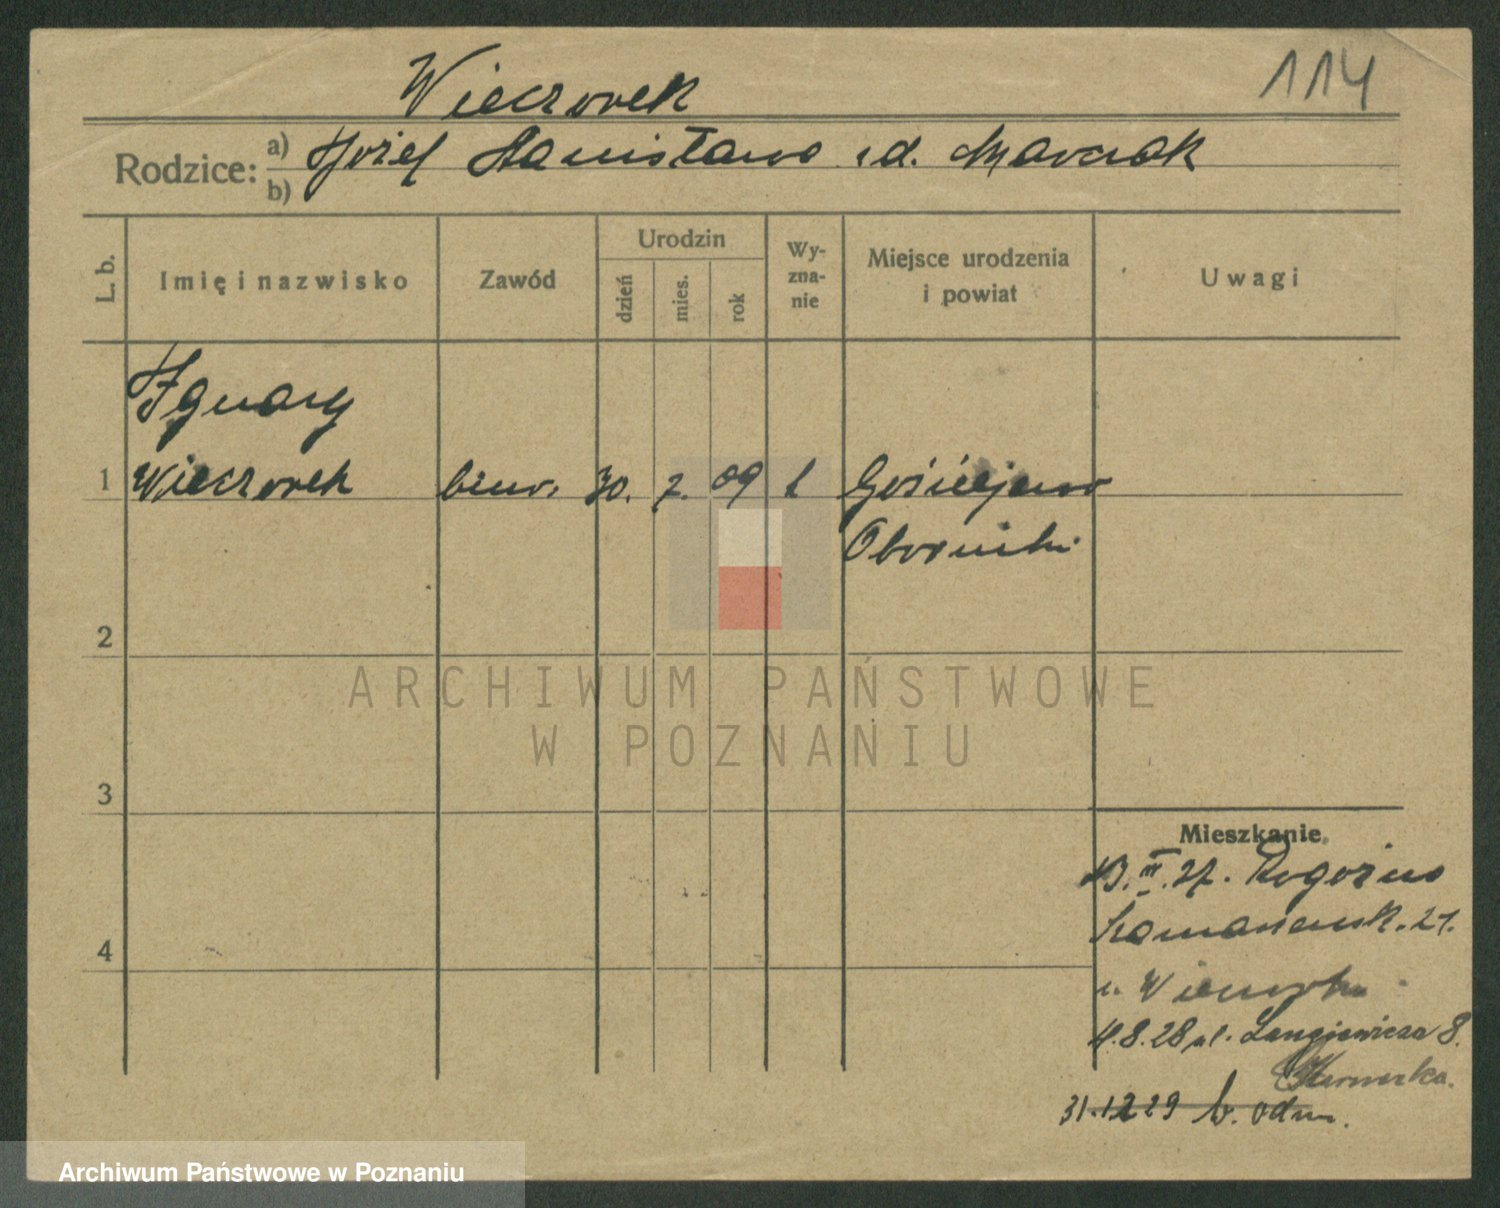 Wieczorek
114
Rodzice:
a) Józef Stanisława z d. Marciak
b)
L. b.
Imię i nazwisko
Zawód
Urodzin
dzień
mies.
rok
Wy-
zna-
nie
Miejsce urodzenia
i powiat
Uwagi
Ignacy
1 Wieczorek biur. 30. 7. 09 k Gościejewo
Oborniki
2
ARCHIWUM PAŃSTWOWE
W POZNANIU
3
Mieszkanie.
III. 27. Rogoźno
21.
4
u. Wieczorka
4.8.28 ul. Langiewicza 8.
31.12 29 b. odm.
Archiwum Państwowe w Poznaniu